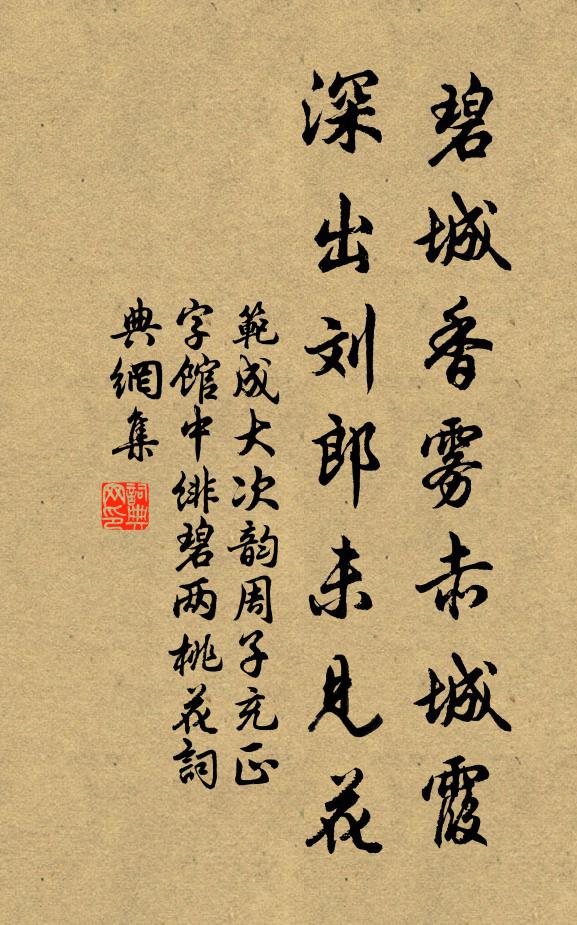 碧城香雾赤城霞
深出刘郎未见花
範成大次韵周子充正
字館中緋碧两桃花詞
典網集
詞典
网印